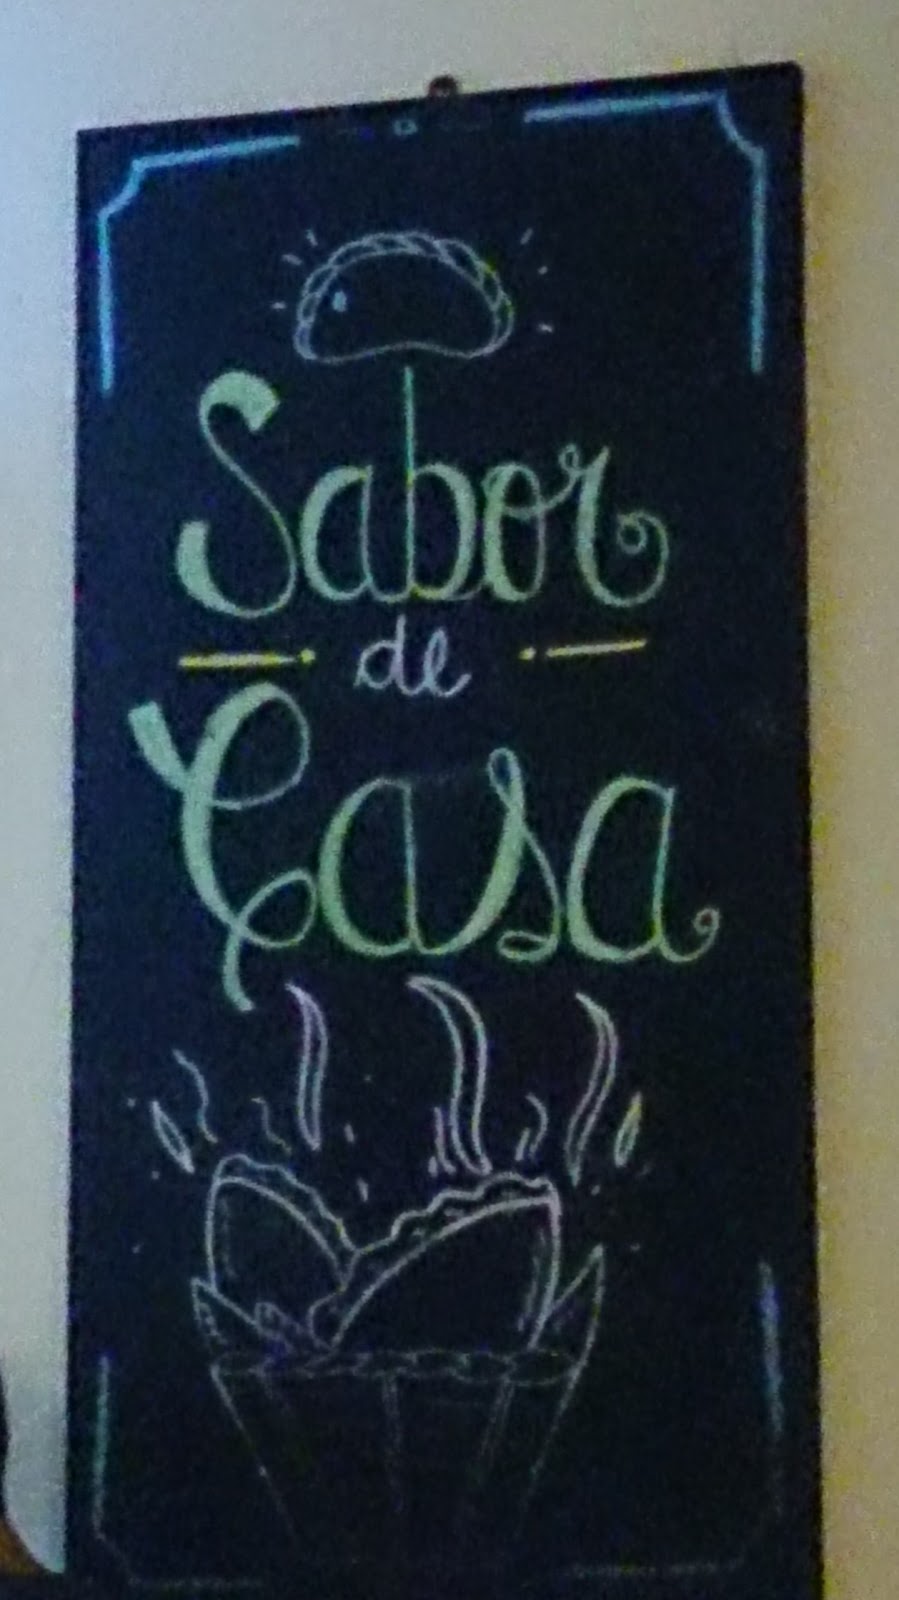 Sabor
de
Casa